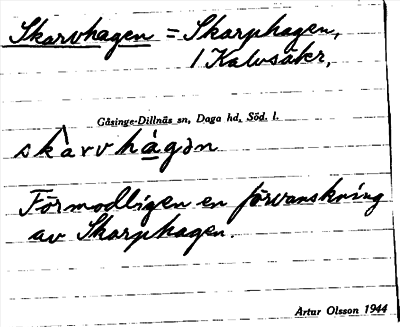 Skarvhagen = Skarphagen,
1 Kalvsåkr,
Gåsinge-Dillnäs sn, Daga hd, Söd. l.
skàrvhágən
Förmodligen en förvanskning
av Skarphagen.
Artur Olsson 1944